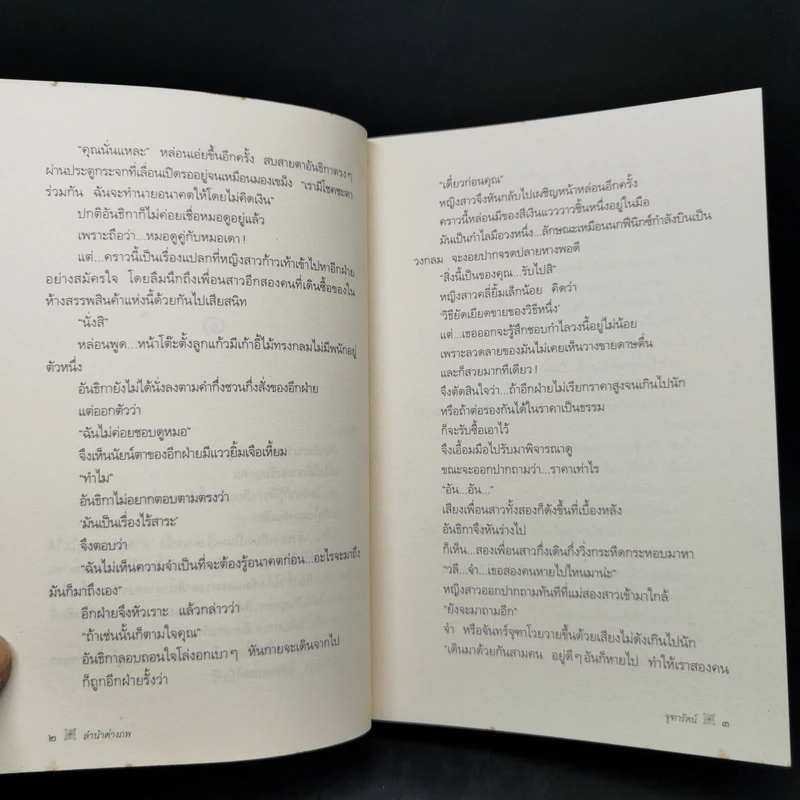 “คุณนั่นแหละ” หล่อนเอ่ยขึ้นอีกครั้ง สบสายตาอันธิกาตรงๆ
ผ่านประตูกระจกที่เลื่อนเปิดรออยู่จนเหมือนมองเขม็ง “เรามีโชคชะตา
ร่วมกัน ฉันจะทำนายอนาคตให้โดยไม่คิดเงิน”
ปกติอันธิกาก็ไม่ค่อยเชื่อหมอดูอยู่แล้ว
เพราะถือว่า...หมอดูคู่กับหมอเดา!
แต่...คราวนี้เป็นเรื่องแปลกที่หญิงสาวก้าวเท้าเข้าไปหาอีกฝ่าย
อย่างสมัครใจ โดยลืมนึกถึงเพื่อนสาวอีกสองคนที่เดินซื้อของใน
ห้างสรรพสินค้าแห่งนี้ด้วยกันไปเสียสนิท
“นั่งสิ”
หล่อนพูด...หน้าโต๊ะตั้งลูกแก้วมีเก้าอี้ไม้ทรงกลมไม่มีพนักอยู่
ตัวหนึ่ง
อันธิกายังไม่ได้นั่งลงตามคำกึ่งชวนกึ่งสั่งของอีกฝ่าย
แต่ออกตัวว่า
“ฉันไม่ค่อยชอบดูหมอ”
จึงเห็นนัยน์ตาของอีกฝ่ายมีแววยิ้มเจือเหี้ยม
“ทำไม”
อันธิกาไม่อยากตอบตามตรงว่า
‘มันเป็นเรื่องไร้สาระ’
จึงตอบว่า
“ฉันไม่เห็นความจำเป็นที่จะต้องรู้อนาคตก่อน...อะไรจะมาถึง
มันก็มาถึงเอง”
อีกฝ่ายจึงหัวเราะ แล้วกล่าวว่า
“ถ้าเช่นนั้นก็ตามใจคุณ”
อันธิกาลอบถอนใจโล่งอกเบาๆ หันกายจะเดินจากไป
ก็ถูกอีกฝ่ายรั้งว่า
๒ ลำนำต่างภพ
“เดี๋ยวก่อนคุณ”
หญิงสาวจึงหันกลับไปเผชิญหน้าหล่อนอีกครั้ง
คราวนี้หล่อนมีของสีเงินแวววาวชิ้นหนึ่งอยู่ในมือ
มันเป็นกำไลมือวงหนึ่ง...ลักษณะเหมือนนกฟีนิกซ์กำลังบินเป็น
วงกลม จะงอยปากจรดปลายหางพอดี
“สิ่งนี้เป็นของคุณ...รับไปสิ”
หญิงสาวคลี่ยิ้มเล็กน้อย คิดว่า
‘วิธียัดเยียดขายของวิธีหนึ่ง’
แต่...เธอออกจะรู้สึกชอบกำไลวงนี้อยู่ไม่น้อย
เพราะลวดลายของมันไม่เคยเห็นวางขายดาษดื่น
และก็สวยมากทีเดียว!
จึงตัดสินใจว่า...ถ้าอีกฝ่ายไม่เรียกราคาสูงจนเกินไปนัก
หรือถ้าต่อรองกันได้ในราคาเป็นธรรม
ก็จะรับซื้อเอาไว้
จึงเอื้อมมือไปรับมาพิจารณาดู
ขณะจะออกปากถามว่า...ราคาเท่าไร
“อัน...อัน...”
เสียงเพื่อนสาวทั้งสองก็ดังขึ้นที่เบื้องหลัง
อันธิกาจึงหันร่างไป
ก็เห็น...สองเพื่อนสาวกึ่งเดินกึ่งวิ่งกระหืดกระหอบมาหา
“วลี...จ๋า...เธอสองคนหายไปไหนมาน่ะ”
หญิงสาวออกปากถามทันทีที่แม่สองสาวเข้ามาใกล้
“ยังจะมาถามอีก”
จ๋า หรือจันทร์จุฑาโวยวายขึ้นด้วยเสียงไม่ดังเกินไปนัก
“เดินมาด้วยกันสามคน อยู่ดีๆ อันก็หายไป ทำให้เราสองคน
จุฑารัตน์ ๓